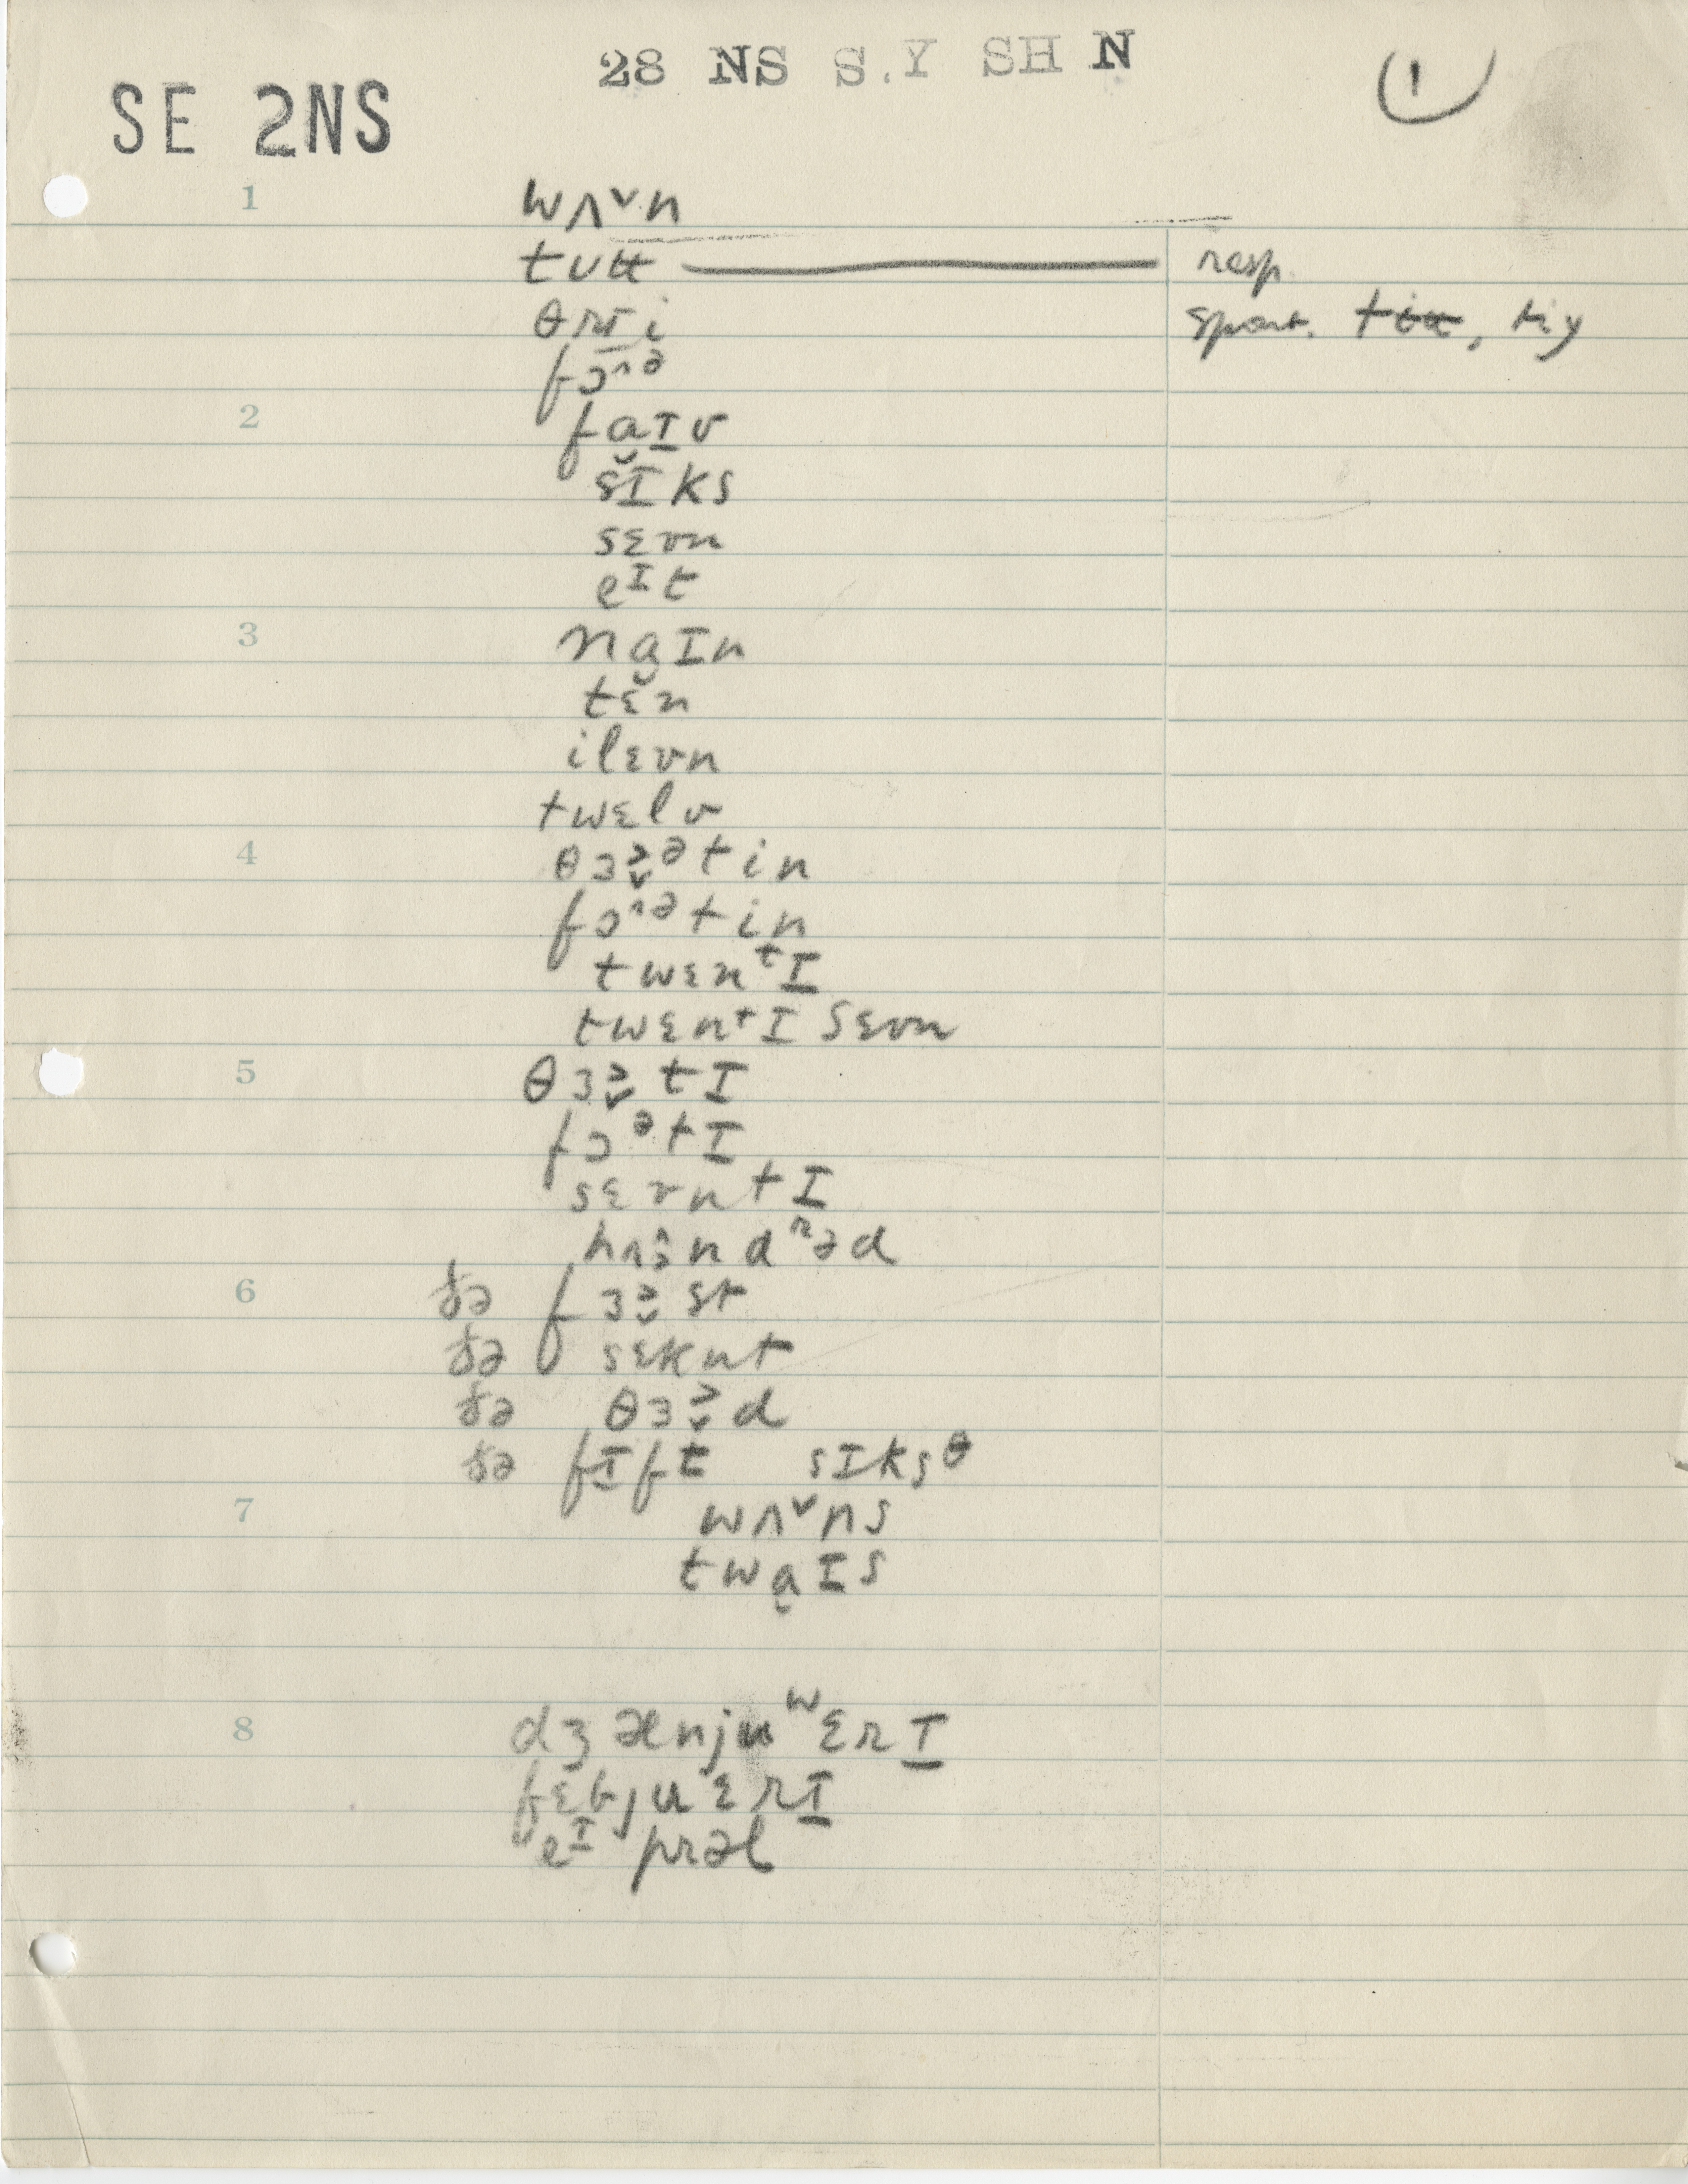 28 NS S.Y SH N
1
SE 2NS
1 wʌ˅n
tᴜʉ resp.
θrɪ̱i spont. tɨʉ,
fɔ˄ə
2 fa̬ɪ̱v
sɪ̆ks
sɛvn
eᶦt
3 na̬ɪn
tɛn
ilɛvn
twɛlv
4 θɜ˞̬ᵊtin
fɔ˄ᵊtin
twɛnᵗɪ̱
twɛnᵗɪ sɛvn
5 θɜ˞̬tɪ
fɔᵊtɪ
sɛvntɪ
hʌndʳəd
6 ðə fɜ˞̬st
ðə sɛknt
ðə θɜ˞̬d
ðə fɪ̱ft sɪksᶿ
7 wʌ˅ns
twa̬ɪs
8 dʒænjuʷɛrɪ̱
fɛbjuɛrɪ̱
eᶦprəl